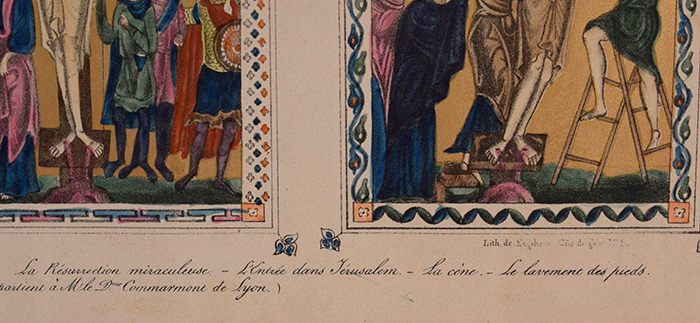 Lith. de
La Résurrection miraculeuse. – L'Entrée dans Jérusalem. – La cène. – Le lavement des pieds.
partient à Mr. le Dr. Commarmont de Lyon. )